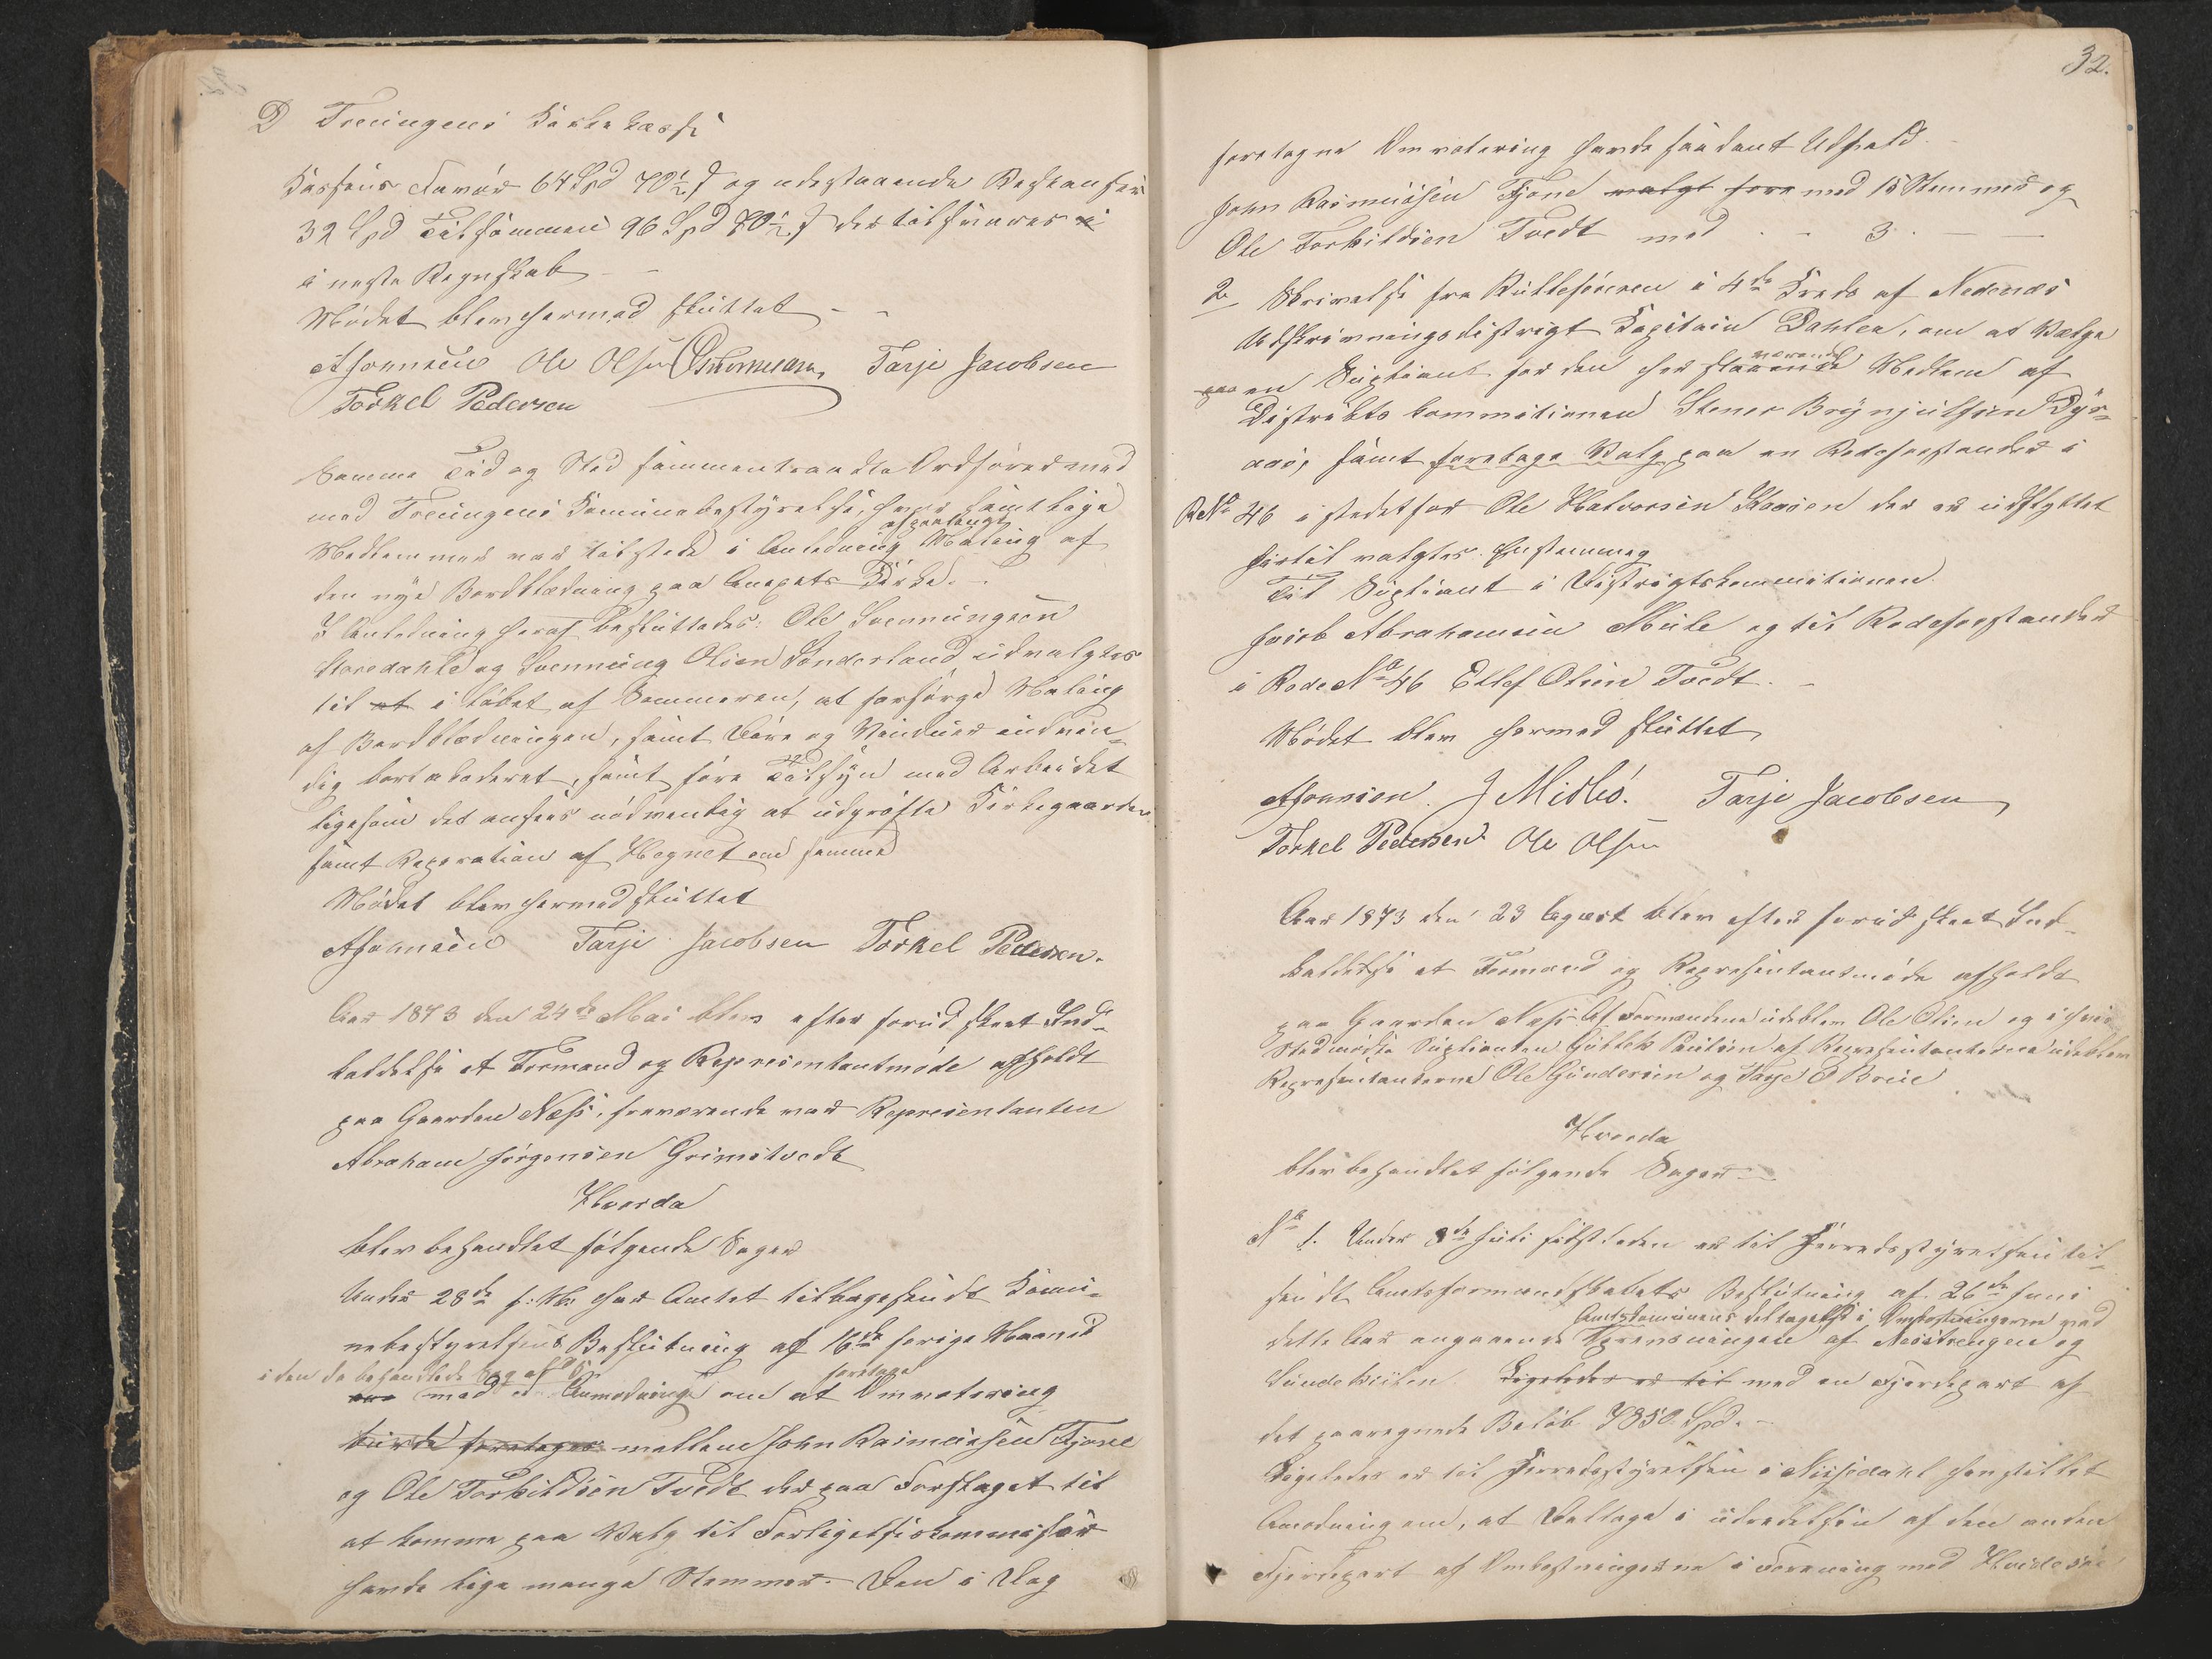 D Treungens Kirkekasse
Kassens Favør 64 Spd 70½ ß og udestaaende Restancer
32 Spd Tilsammen 96 Spd 70½ ß der tilsvares i
i neste Regnskab –
Mødet blev hermed sluttet –
AJohnsen Ole Olsen Tarje Jacobsen
Torkel Pedersen
Samme Tid og Sted sammentraadte Ordføreren med
med Treungens Komunebestyrelse, hvor samtlige
Medlemmer var tilstede i Anledning af paatænkt Maling af
den nye Bordklædning paa Anexets Kirke. –
I Anledning heraf besluttedes: Ole Svenningsen
Storedahle og Svenning Olsen Sønderland udvalgtes
til at i løbet af Sommeren, at forsørge Maling
af Bordklædningen, samt Døre og Vinduer indven-
dig, samt føre Tilsyn med Arbeidet
ligesom det ansees nødvendig at udgrøfte Kirkegaarden
samt Reparation af Hegnet om samme
Mødet blev hermed sluttet
AJohnsen Tarje Jacobsen Torkel Pedersen.
Aar 1873 den 24de Mai blev efter forud skeet Ind-
kaldelse et Formand og Representantmøde afholdt
paa Gaarden Næss, fraværende var Representanten
Abraham Jørgensen Grimstvedt
Hvorda
blev behandlet følgende Sager
Under 28de f: M: har Amtet tilbagesendt Komu-
nebestyrelsens Beslutning af 16de forige Maaned
i den da behandlede Sag af
med Anmodning om at foretage Omvotering
burde foretages mellem John Rasmussen Fjone
og Ole Torkildsen Tvedt der paa Forslaget til
at komme paa Valg til Forligelseskommissær
havde lige mange Stemmer. – Den i Dag
32.
foretagne Omvotering havde saadant Udfald –
John Rasmussen Fjone valgt som med 15 Stemmer og
Ole Torkildsen Tvedt med – – 3 – —
2 Skrivelse fra Rulleføreren i 4de Kreds af Nedenæs
Udskrivningsdistrigt Kapitain Dahlen, om at Vælge
en Supliant for den her værende Medlem af
Distrikts kommitionen Stener Brynjulfsen Dys-
aas, samt foretage Valg paa en Rodeforstander i
R No 46 i stedet for Ole Halvorsen Skaaen der er udflyttet
hertil valgtes Enstemmig
Til Supliant i Distrigtskommitionen
Jacob Abrahamsen Mule og til Rodeforstander
i Rode No 46 Ellef Olsen Tvedt. –
Mødet blev hermed sluttet
AJohnsen. J Midbø. Tarje Jacobsen
Torkel Pedersen Ole Olsen
Aar 1873 den 23 August blev efter forud skeet Ind-
kaldelse et Formand og Representantmøde afholdt
paa Gaarden Næss. Af Formændene udeblev Ole Olsen og i hans
Sted mødte Suplianten Gullek Paulsen af Representanterne udeblev
Representanterne Ole Gundersen og Tarje O Breie
Hvorda
blev behandlet følgende Sager –
No 1. Under 8de Juli sidstleden er til Herredsstyrelsen til-
sendt Amtsformandskabets Beslutning af 26de Juni
dette Aar angaaende Amtskomunens deltagelse i Omkostningerne ved Oprensningen af Neisstrengen og
Sundekilen. Ligeledes er til med en Fjerdepart af
det paaregnede Beløb 7850 Spd. –
Ligeledes er til Herredsstyrelsen i Nissedahl henstillet
Anmodning om, at Deltage i udredelsen af den anden
Fjerdepart af Omkostningerne i Forening med Hvidesøe